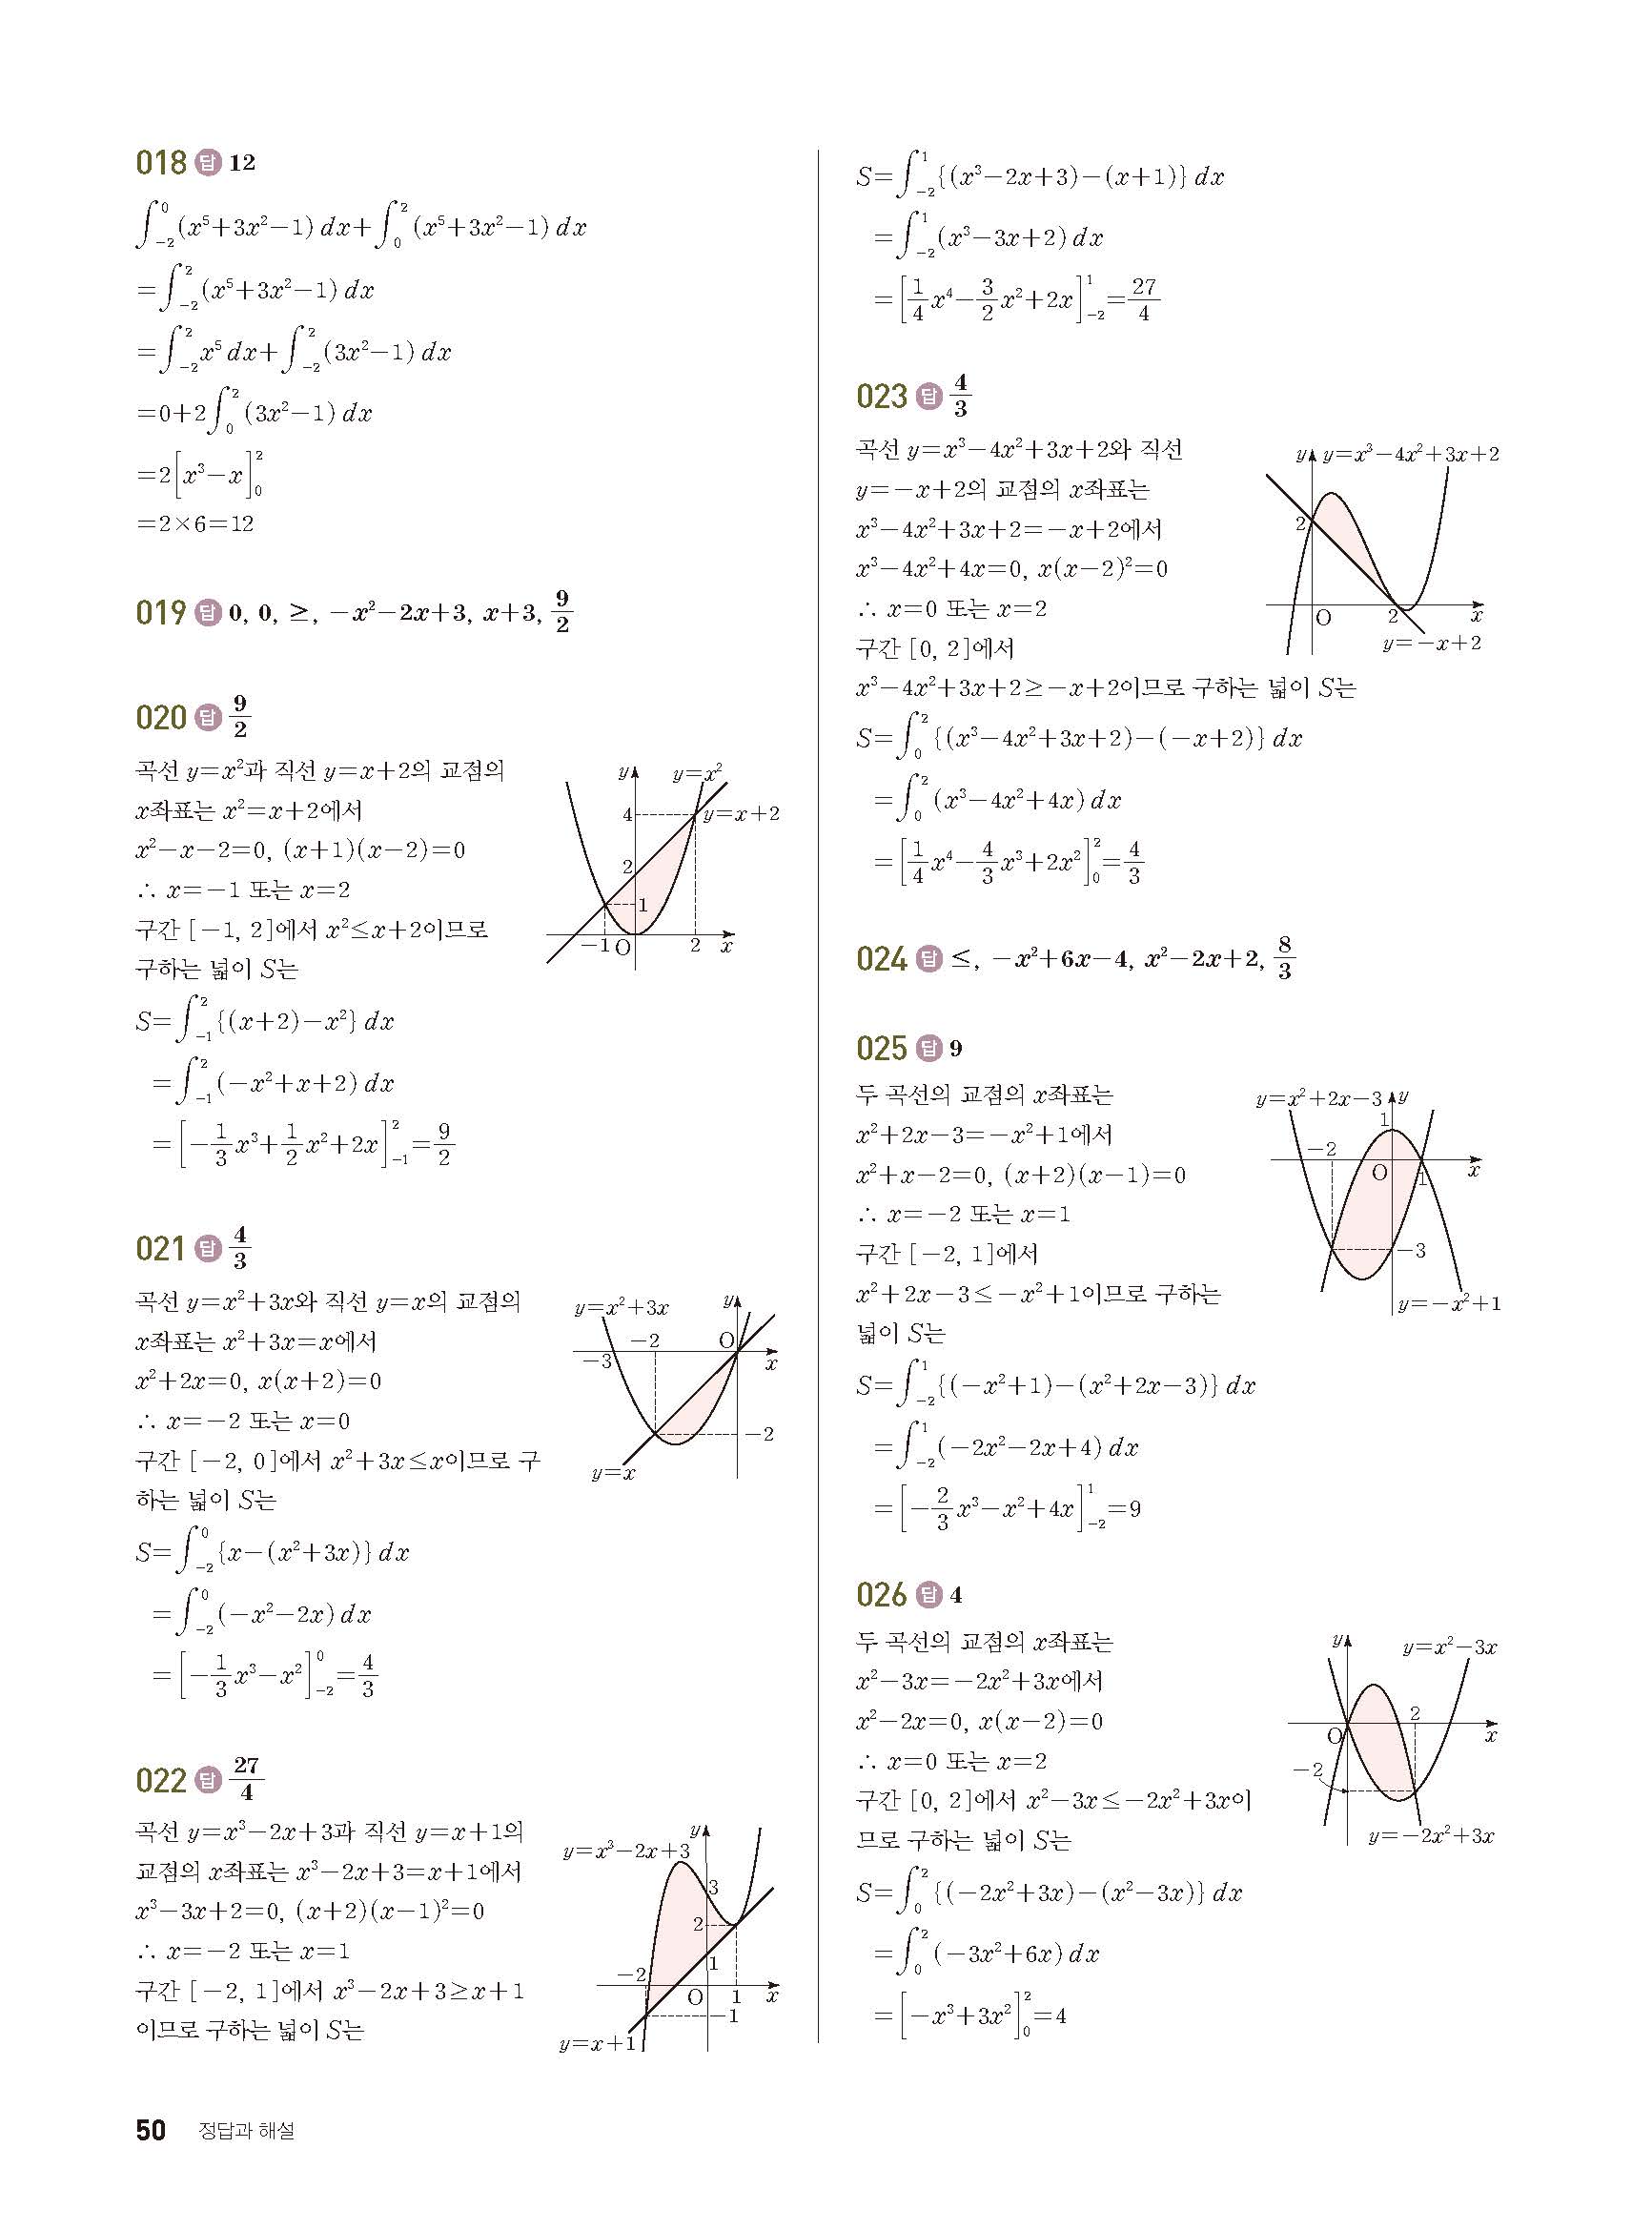 018 답 12
∫₋₂⁰(x⁵+3x²−1) dx+∫₀²(x⁵+3x²−1) dx
=∫₋₂²(x⁵+3x²−1) dx
=∫₋₂²x⁵ dx+∫₋₂²(3x²−1) dx
=0+2∫₀²(3x²−1) dx
=2[x³−x]₀²
=2×6=12
019 답 0, 0, ≥, −x²−2x+3, x+3, 9/2
020 답 9/2
곡선 y=x²과 직선 y=x+2의 교점의
x좌표는 x²=x+2에서
x²−x−2=0, (x+1)(x−2)=0
∴ x=−1 또는 x=2
구간 [−1, 2]에서 x²≤x+2이므로
구하는 넓이 S는
y
y=x²
4
y=x+2
2
1
−1
O
2
x
S=∫₋₁²{(x+2)−x²} dx
=∫₋₁²(−x²+x+2) dx
=[−1/3x³+1/2x²+2x]₋₁²=9/2
021 답 4/3
곡선 y=x²+3x와 직선 y=x의 교점의
x좌표는 x²+3x=x에서
x²+2x=0, x(x+2)=0
∴ x=−2 또는 x=0
구간 [−2, 0]에서 x²+3x≤x이므로 구
하는 넓이 S는
y=x²+3x
y
−2
O
−3
x
−2
y=x
S=∫₋₂⁰{x−(x²+3x)} dx
=∫₋₂⁰(−x²−2x) dx
=[−1/3x³−x²]₋₂⁰=4/3
022 답 27/4
곡선 y=x³−2x+3과 직선 y=x+1의
교점의 x좌표는 x³−2x+3=x+1에서
x³−3x+2=0, (x+2)(x−1)²=0
∴ x=−2 또는 x=1
구간 [−2, 1]에서 x³−2x+3≥x+1
이므로 구하는 넓이 S는
y
y=x³−2x+3
3
2
1
−2
O
1
x
−1
y=x+1
S=∫₋₂¹{(x³−2x+3)−(x+1)} dx
=∫₋₂¹(x³−3x+2) dx
=[1/4x⁴−3/2x²+2x]₋₂¹=27/4
023 답 4/3
곡선 y=x³−4x²+3x+2와 직선
y=−x+2의 교점의 x좌표는
x³−4x²+3x+2=−x+2에서
x³−4x²+4x=0, x(x−2)²=0
∴ x=0 또는 x=2
구간 [0, 2]에서
x³−4x²+3x+2≥−x+2이므로 구하는 넓이 S는
y
y=x³−4x²+3x+2
2
O
2
x
y=−x+2
S=∫₀²{(x³−4x²+3x+2)−(−x+2)} dx
=∫₀²(x³−4x²+4x) dx
=[1/4x⁴−4/3x³+2x²]₀²=4/3
024 답 ≤, −x²+6x−4, x²−2x+2, 8/3
025 답 9
두 곡선의 교점의 x좌표는
x²+2x−3=−x²+1에서
x²+x−2=0, (x+2)(x−1)=0
∴ x=−2 또는 x=1
구간 [−2, 1]에서
x²+2x−3≤−x²+1이므로 구하는
넓이 S는
y=x²+2x−3
y
1
−2
O
1
x
−3
y=−x²+1
S=∫₋₂¹{(−x²+1)−(x²+2x−3)} dx
=∫₋₂¹(−2x²−2x+4) dx
=[−2/3x³−x²+4x]₋₂¹=9
026 답 4
두 곡선의 교점의 x좌표는
x²−3x=−2x²+3x에서
x²−2x=0, x(x−2)=0
∴ x=0 또는 x=2
구간 [0, 2]에서 x²−3x≤−2x²+3x이
므로 구하는 넓이 S는
y
y=x²−3x
2
O
x
−2
y=−2x²+3x
S=∫₀²{(−2x²+3x)−(x²−3x)} dx
=∫₀²(−3x²+6x) dx
=[−x³+3x²]₀²=4
50 정답과 해설